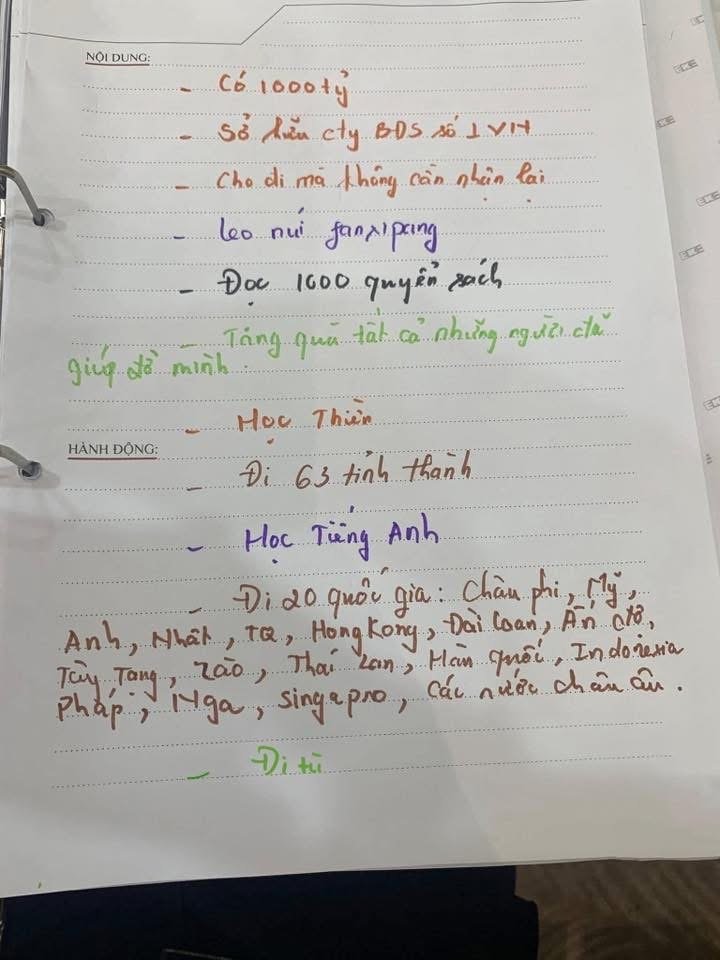 NỘI DUNG:
- Có 1000 tỷ
- Sở hữu cty BĐS số 1 VN
- Cho đi mà không cần nhận lại
- leo núi fanxipang
- Đọc 1000 quyển sách
- Tặng quà tất cả những người đã
giúp đỡ mình.
- Học Thiền
HÀNH ĐỘNG:
- Đi 63 tỉnh thành
- Học Tiếng Anh
- Đi 20 quốc gia: Châu phi, Mỹ,
Anh, Nhật, TQ, HongKong, Đài Loan, Ấn độ,
Tây Tạng, Lào, Thái Lan, Hàn quốc, Indonexia
Pháp, Nga, singapro, các nước châu âu.
- Đi tù